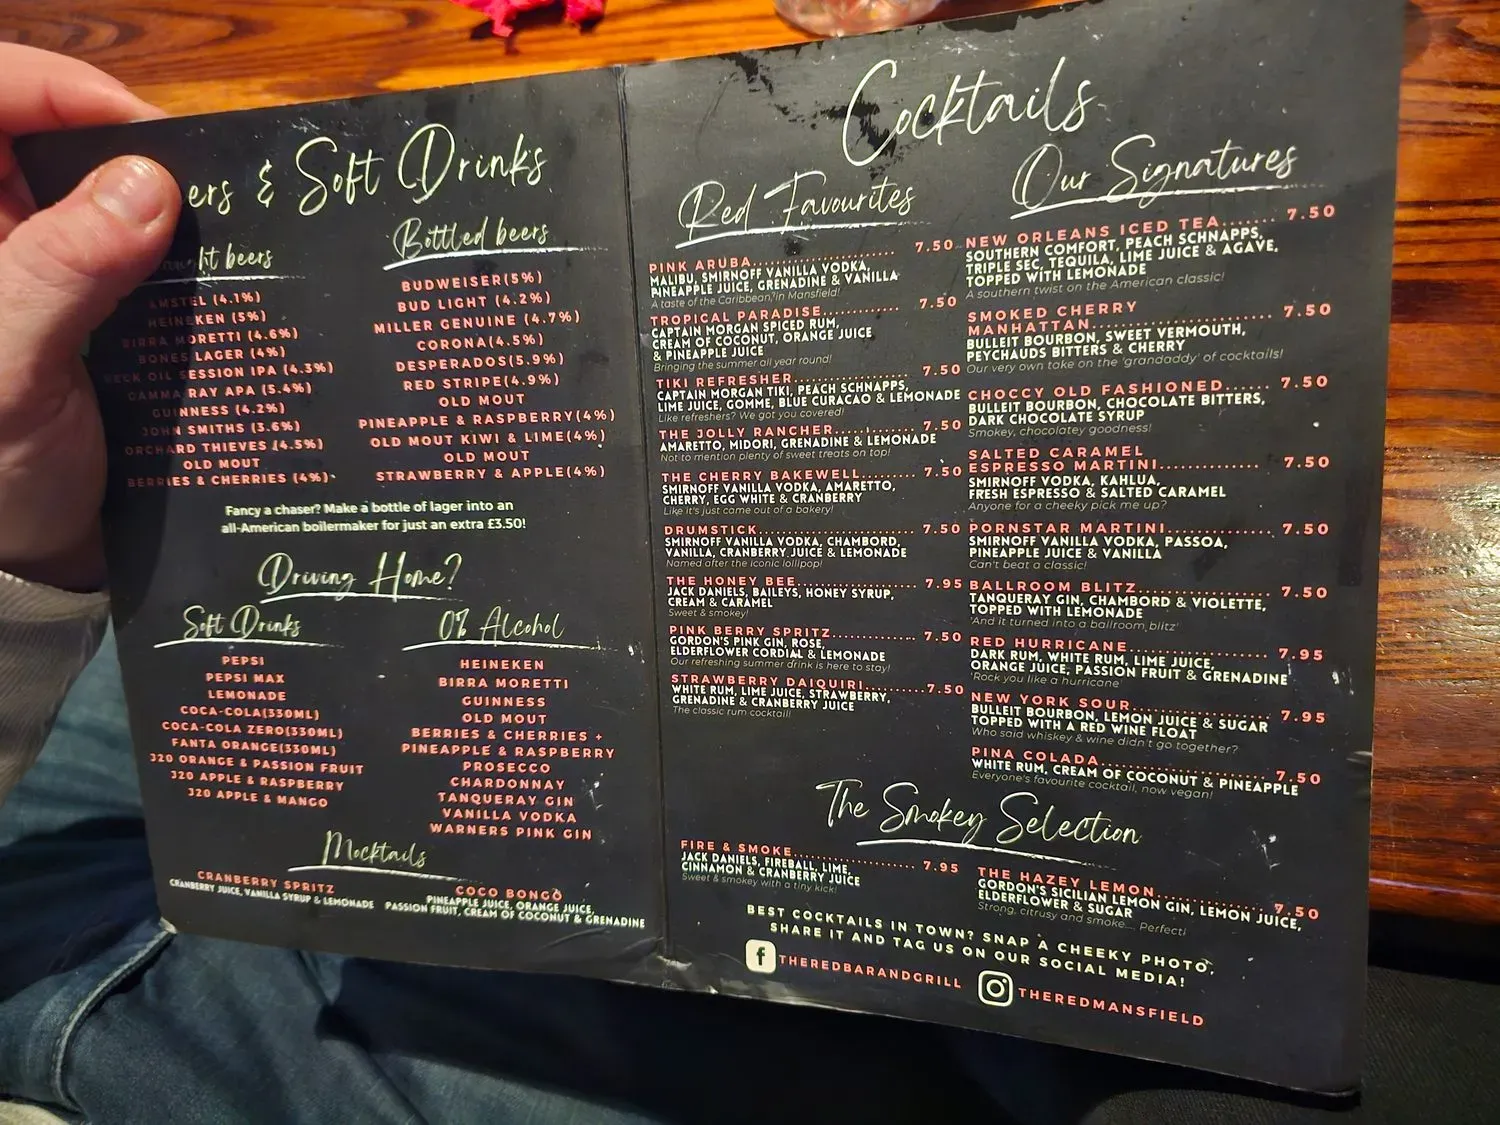 ers & Soft Drinks
ht beers
AMSTEL (4.1%)
HEINEKEN (5%)
BIRRA MORETTI (4.6%)
BONES LAGER (4%)
NECK OIL SESSION IPA (4.3%)
GAMMA RAY APA (5.4%)
GUINNESS (4.2%)
JOHN SMITHS (3.6%)
ORCHARD THIEVES (4.5%)
OLD MOUT
BERRIES & CHERRIES (4%)
Bottled beers
BUDWEISER(5%)
BUD LIGHT (4.2%)
MILLER GENUINE (4.7%)
CORONA(4.5%)
DESPERADOS(5.9%)
RED STRIPE(4.9%)
OLD MOUT
PINEAPPLE & RASPBERRY(4%)
OLD MOUT KIWI & LIME(4%)
OLD MOUT
STRAWBERRY & APPLE(4%)
Fancy a chaser? Make a bottle of lager into an
all-American boilermaker for just an extra £3.50!
Driving Home?
Soft Drinks
PEPSI
PEPSI MAX
LEMONADE
COCA-COLA(330ML)
COCA-COLA ZERO(330ML)
FANTA ORANGE(330ML)
J20 ORANGE & PASSION FRUIT
J20 APPLE & RASPBERRY
J20 APPLE & MANGO
0% Alcohol
HEINEKEN
BIRRA MORETTI
GUINNESS
OLD MOUT
BERRIES & CHERRIES +
PINEAPPLE & RASPBERRY
PROSECCO
CHARDONNAY
TANQUERAY GIN
VANILLA VODKA
WARNERS PINK GIN
Mocktails
CRANBERRY SPRITZ
CRANBERRY JUICE, VANILLA SYRUP & LEMONADE
COCO BONGO
PINEAPPLE JUICE, ORANGE JUICE,
PASSION FRUIT, CREAM OF COCONUT & GRENADINE
Cocktails
Red Favourites
PINK ARUBA.................... 7.50
MALIBU, SMIRNOFF VANILLA VODKA,
PINEAPPLE JUICE, GRENADINE & VANILLA
A taste of the Caribbean, in Mansfield!
TROPICAL PARADISE............... 7.50
CAPTAIN MORGAN SPICED RUM,
CREAM OF COCONUT, ORANGE JUICE
& PINEAPPLE JUICE
Bringing the summer all year round!
TIKI REFRESHER.................. 7.50
CAPTAIN MORGAN TIKI, PEACH SCHNAPPS,
LIME JUICE, GOMME, BLUE CURACAO & LEMONADE
Like refreshers? We got you covered!
THE JOLLY RANCHER.............. 7.50
AMARETTO, MIDORI, GRENADINE & LEMONADE
Not to mention plenty of sweet treats on top!
THE CHERRY BAKEWELL........... 7.50
SMIRNOFF VANILLA VODKA, AMARETTO,
CHERRY, EGG WHITE & CRANBERRY
Like it's just came out of a bakery!
DRUMSTICK...................... 7.50
SMIRNOFF VANILLA VODKA, CHAMBORD,
VANILLA, CRANBERRY JUICE & LEMONADE
Named after the iconic lollipop!
THE HONEY BEE.................. 7.95
JACK DANIELS, BAILEYS, HONEY SYRUP,
CREAM & CARAMEL
Sweet & smokey!
PINK BERRY SPRITZ.............. 7.50
GORDON'S PINK GIN, ROSE,
ELDERFLOWER CORDIAL & LEMONADE
Our refreshing summer drink is here to stay!
STRAWBERRY DAIQUIRI..........7.50
WHITE RUM, LIME JUICE, STRAWBERRY,
GRENADINE & CRANBERRY JUICE
The classic rum cocktail!
Our Signatures
NEW ORLEANS ICED TEA....... 7.50
SOUTHERN COMFORT, PEACH SCHNAPPS,
TRIPLE SEC, TEQUILA, LIME JUICE & AGAVE,
TOPPED WITH LEMONADE
A southern twist on the American classic!
SMOKED CHERRY
MANHATTAN.................... 7.50
BULLEIT BOURBON, SWEET VERMOUTH,
PEYCHAUDS BITTERS & CHERRY
Our very own take on the 'grandaddy' of cocktails!
CHOCCY OLD FASHIONED...... 7.50
BULLEIT BOURBON, CHOCOLATE BITTERS,
DARK CHOCOLATE SYRUP
Smokey, chocolatey goodness!
SALTED CARAMEL
ESPRESSO MARTINI............. 7.50
SMIRNOFF VODKA, KAHLUA,
FRESH ESPRESSO & SALTED CARAMEL
Anyone for a cheeky pick me up?
PORNSTAR MARTINI............. 7.50
SMIRNOFF VANILLA VODKA, PASSOA,
PINEAPPLE JUICE & VANILLA
Can't beat a classic!
BALLROOM BLITZ................ 7.50
TANQUERAY GIN, CHAMBORD & VIOLETTE,
TOPPED WITH LEMONADE
'And it turned into a ballroom blitz'
RED HURRICANE................. 7.95
DARK RUM, WHITE RUM, LIME JUICE,
ORANGE JUICE, PASSION FRUIT & GRENADINE
'Rock you like a hurricane'
NEW YORK SOUR................ 7.95
BULLEIT BOURBON, LEMON JUICE & SUGAR
TOPPED WITH A RED WINE FLOAT
Who said whiskey & wine didn't go together?
PINA COLADA.................... 7.50
WHITE RUM, CREAM OF COCONUT & PINEAPPLE
Everyone's favourite cocktail, now vegan!
The Smokey Selection
FIRE & SMOKE................... 7.95
JACK DANIELS, FIREBALL, LIME,
CINNAMON & CRANBERRY JUICE
Sweet & smokey with a tiny kick!
THE HAZEY LEMON............... 7.50
GORDON'S SICILIAN LEMON GIN, LEMON JUICE,
ELDERFLOWER & SUGAR
Strong, citrusy and smoke.... Perfect!
BEST COCKTAILS IN TOWN? SNAP A CHEEKY PHOTO,
SHARE IT AND TAG US ON OUR SOCIAL MEDIA!
f THEREDBARANDGRILL
THEREDMANSFIELD